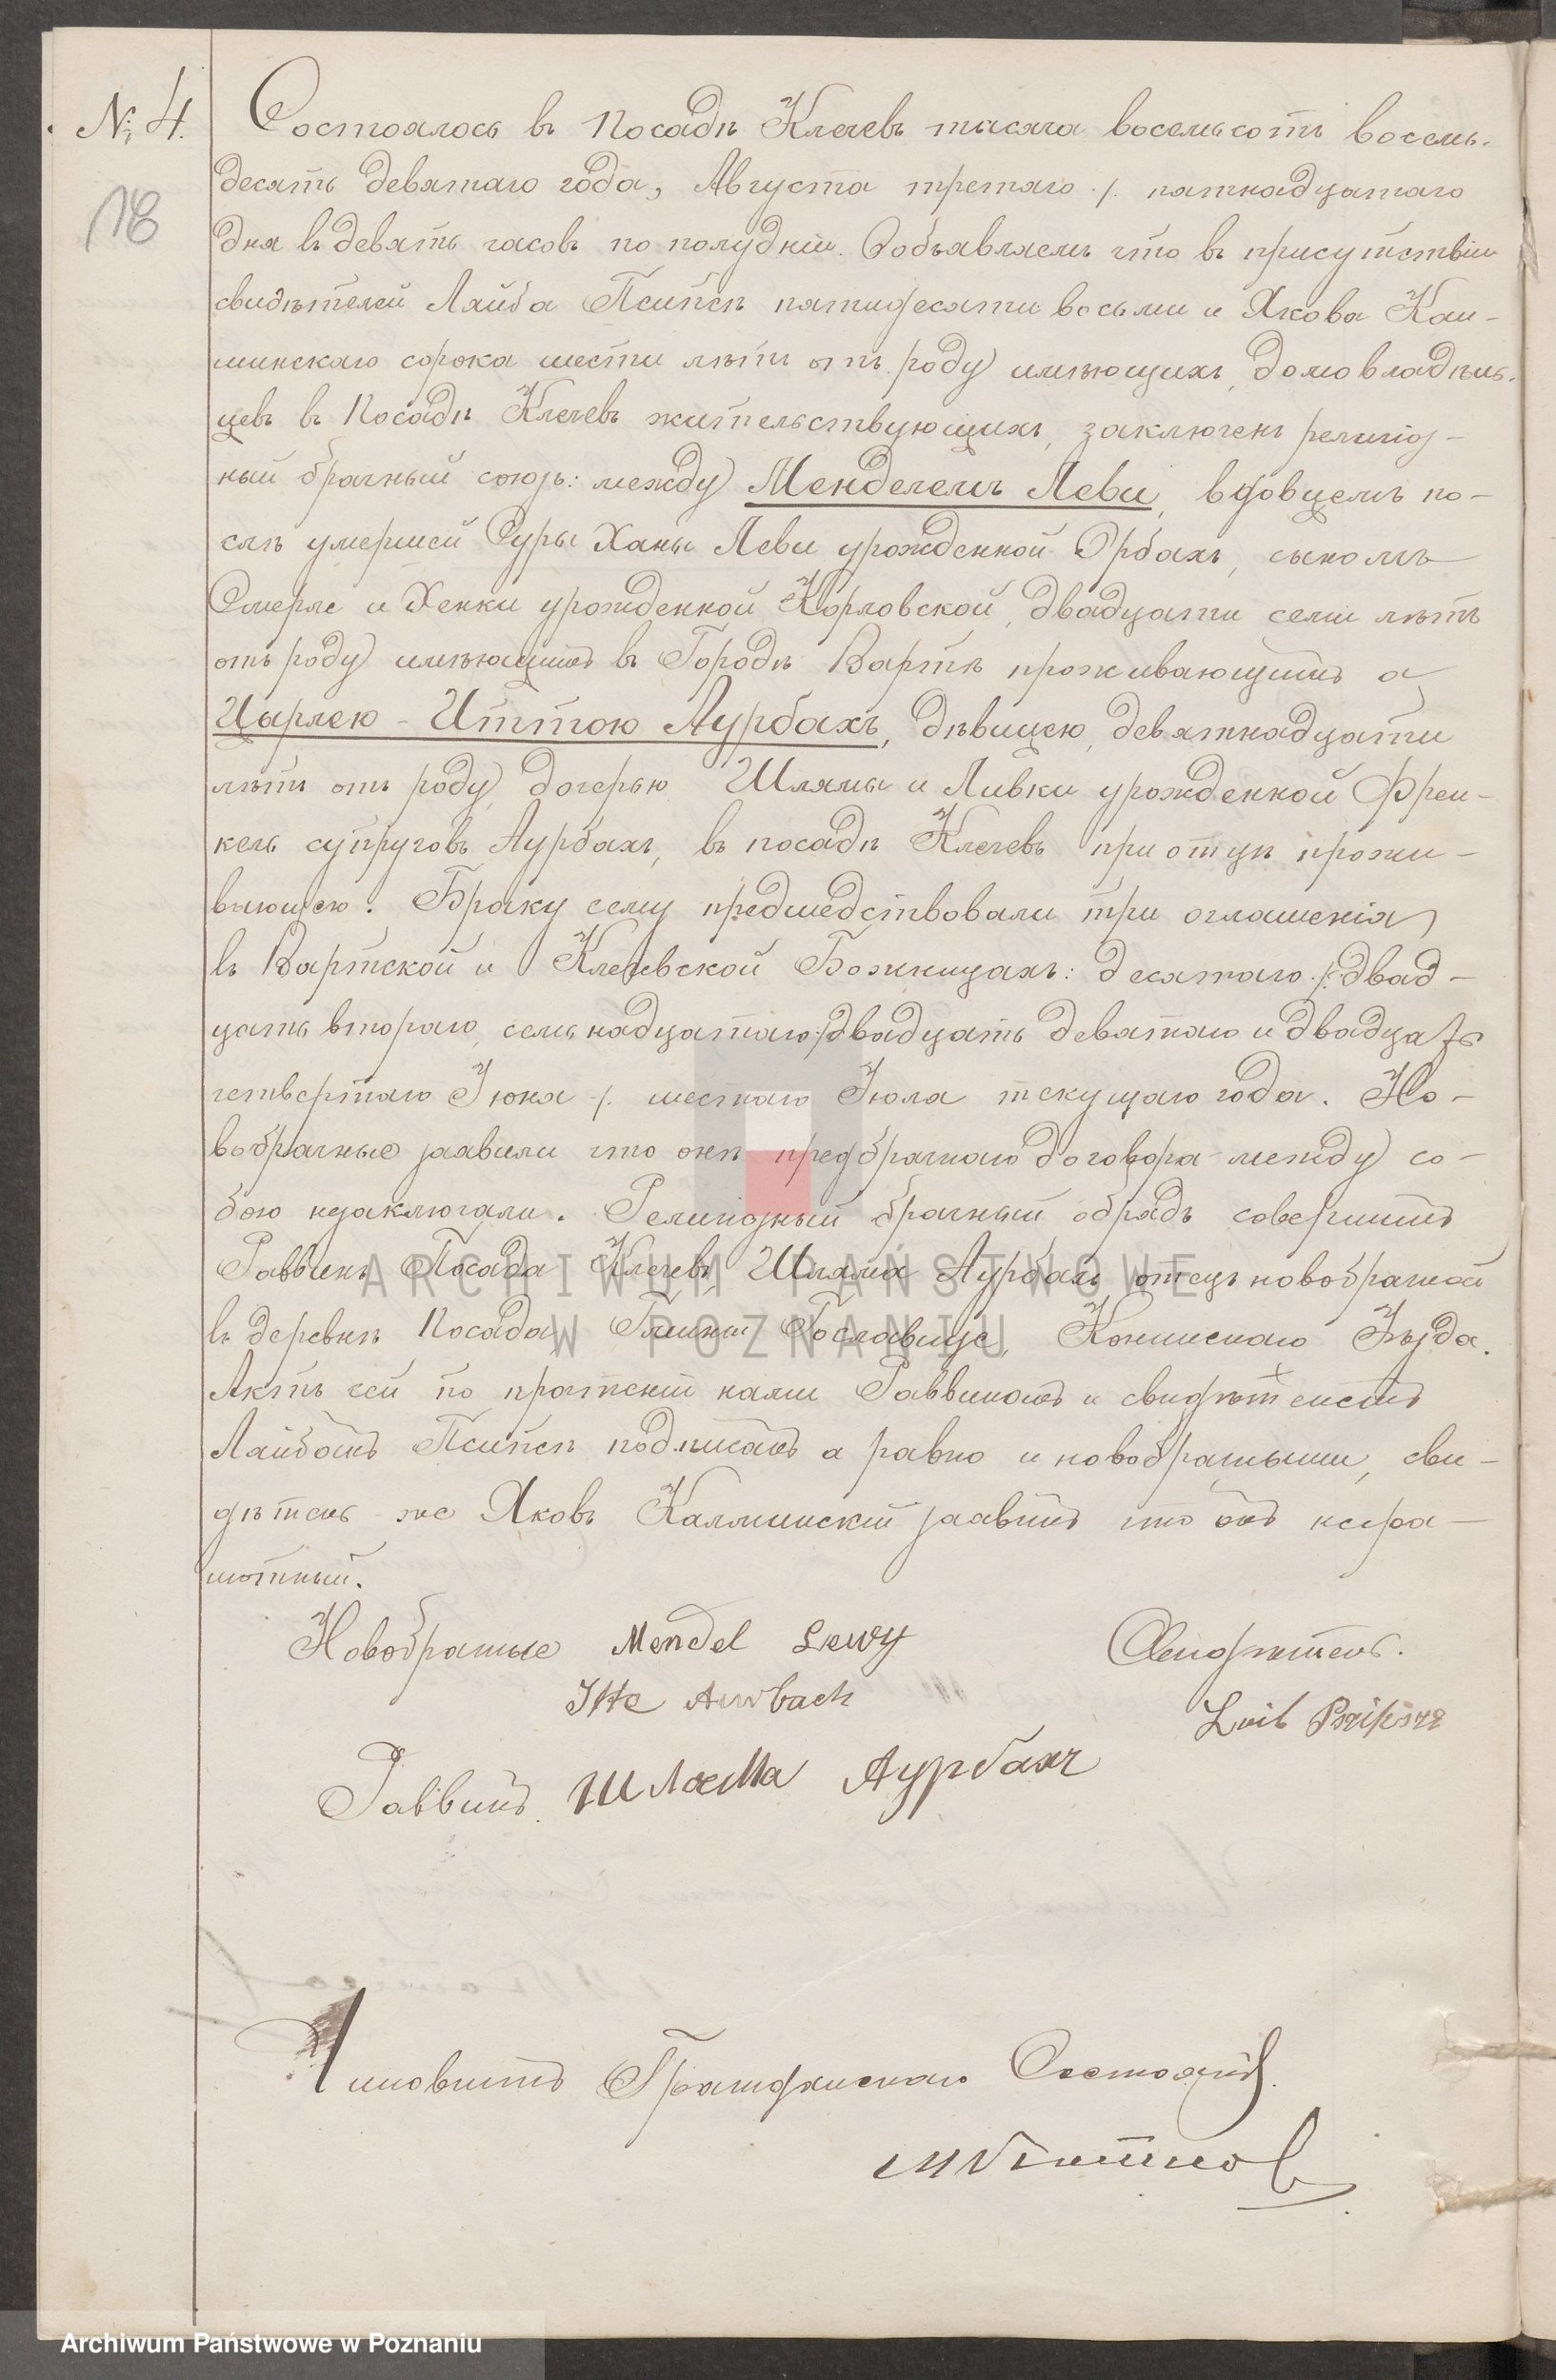 № 4.
18
Состоялось въ Посадѣ Клечевъ тысяча восемьсотъ восемь-
десятъ девятаго года, Августа третяго /. пятнадцатаго
дня въ девять часовъ по полудніи. Объявляемъ что въ присутствіи
свидѣтелей Лайба Псипсѣ пятидесяти восьми и Якова Кал-
минскаго сорока шести лѣтъ отъ роду имѣющихъ, домовладѣль-
цевъ въ Посадѣ Клечевъ жительствующихъ, заключенъ религіоз-
ный брачный союзъ: между Менделемъ Леви, вдовцемъ по-
слѣ умершей Суры Ханы Леви урожденной Орбахъ, сыномъ
Смерле и Хенки урожденной Корловской, двадцати семи лѣтъ
отъ роду имѣющимъ въ Городѣ Вартѣ проживающимъ а
Царлею - Иттою Аурбахъ, дѣвицею, девятнадцати
лѣтъ отъ роду, дочерью Шлямы и Ливки урожденной Френ-
кель супруговъ Аурбахъ, въ посадѣ Клечевъ при отцѣ прожи-
вающею. Браку сему предшедствовали три оглашенія
въ Вартской и Клечевской Божницахъ: десятаго /. двад-
цать втораго, семнадцатаго /. двадцать девятаго и двадцать
четвертаго Іюня /. шестаго Іюля текущаго года. Но-
вобрачные заявили что онѣ предбрачнаго договора между со-
бою незаключали. Религіозный брачный обрядъ совершилъ
Раввинъ Посада Клечевъ Шляма Аурбахъ отецъ новобрачной
въ деревнѣ Посада Гмины Гославице, Конинскаго Уѣзда.
Актъ сей по прочтеніи нами Раввиномъ и свидѣтелемъ
Лайбомъ Псипсѣ подписанъ а равно и новобрачными, сви-
дѣтель же Яковъ Калминскій заявилъ что онъ негра-
мотный.
Новобрачные Mendel Lewy Свидѣтель.
Itte Aurbach
Laib Psipsze
Раввинъ Шляма Аурбахъ
Чиновникъ Гражданскаго Состоянія
ARCHIWUM PAŃSTWOWE
W POZNANIU
Archiwum Państwowe w Poznaniu